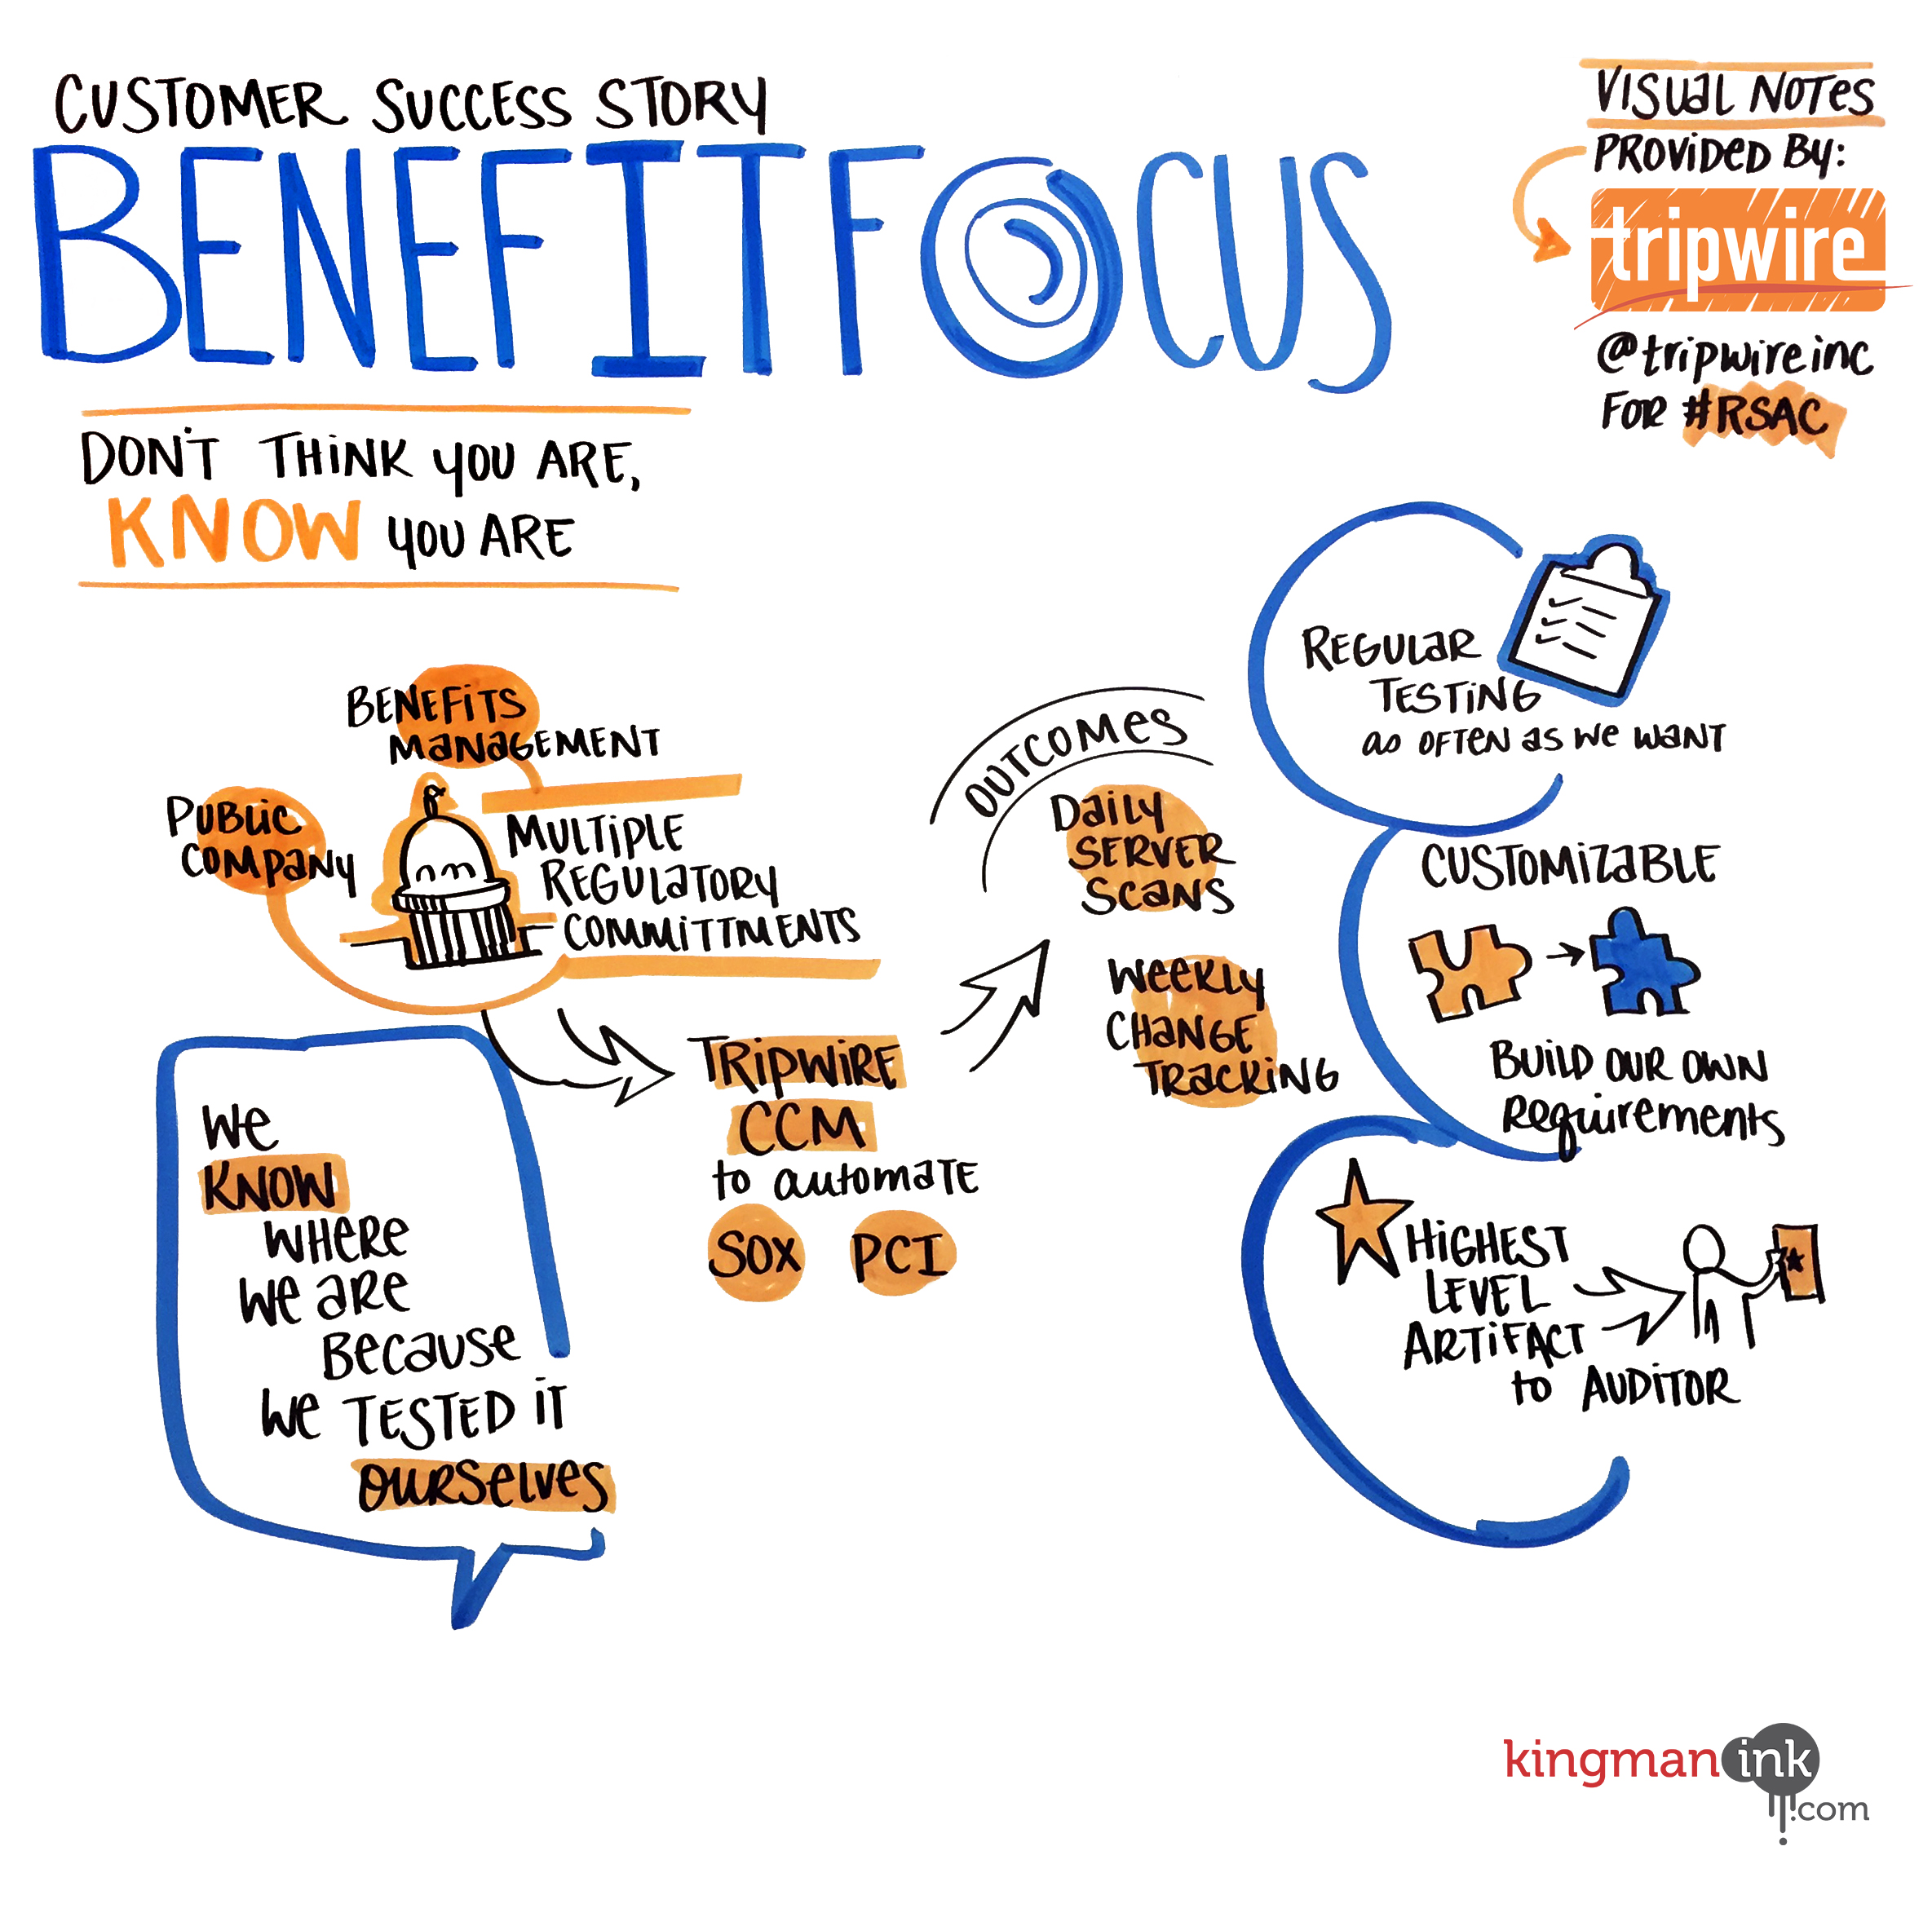 CUSTOMER SUCCESS STORY
BENEFITFOCUS
DON'T THINK YOU ARE,
KNOW YOU ARE
VISUAL NOTES
PROVIDED BY:
tripwire
@tripwireinc
FOR #RSAC
BENEFITS
MANAGEMENT
PUBLIC
COMPANY
MULTIPLE
REGULATORY
COMMITTMENTS
WE
KNOW
WHERE
WE ARE
BECAUSE
WE TESTED IT
OURSELVES
TRIPWIRE
CCM
to automate
SOX PCI
OUTCOMES
DAILY
SERVER
SCANS
WEEKLY
CHANGE
TRACKING
REGULAR
TESTING
as OFTEN as WE WANT
CUSTOMIZABLE
BUILD OUR OWN
REQUIREMENTS
HIGHEST
LEVEL
ARTIFACT
to AUDITOR
kingman ink
.com